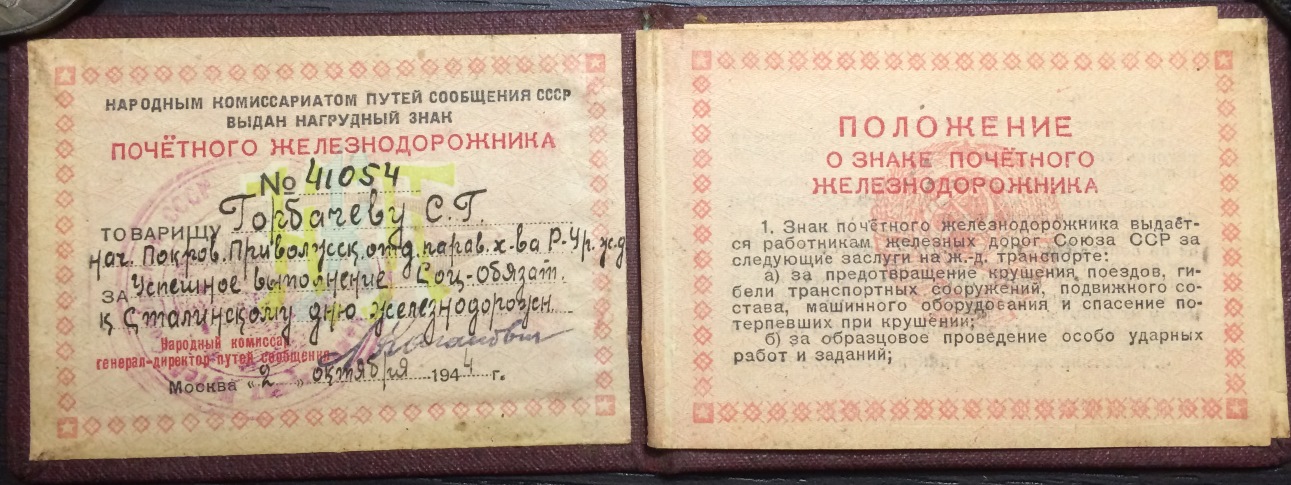 НАРОДНЫМ КОМИССАРИАТОМ ПУТЕЙ СООБЩЕНИЯ СССР
ВЫДАН НАГРУДНЫЙ ЗНАК
ПОЧЁТНОГО ЖЕЛЕЗНОДОРОЖНИКА
№ 41054
ТОВАРИЩУ Горбачеву С.Г.
нач. Покров. Приволжск. отд. парав. х-ва Р-Ур. ж.д
ЗА Успешное выполнение Соц-обязат.
к Сталинскому дню железнодорожн.
Народный комиссар
генерал-директор путей сообщения Л. Каганович
Москва „2" октября 1944 г.
ПОЛОЖЕНИЕ
О ЗНАКЕ ПОЧЁТНОГО
ЖЕЛЕЗНОДОРОЖНИКА
1. Знак почётного железнодорожника выдаёт-
ся работникам железных дорог Союза ССР за
следующие заслуги на ж.-д. транспорте:
а) за предотвращение крушения поездов, ги-
бели транспортных сооружений, подвижного со-
става, машинного оборудования и спасение по-
терпевших при крушении;
б) за образцовое проведение особо ударных
работ и заданий;